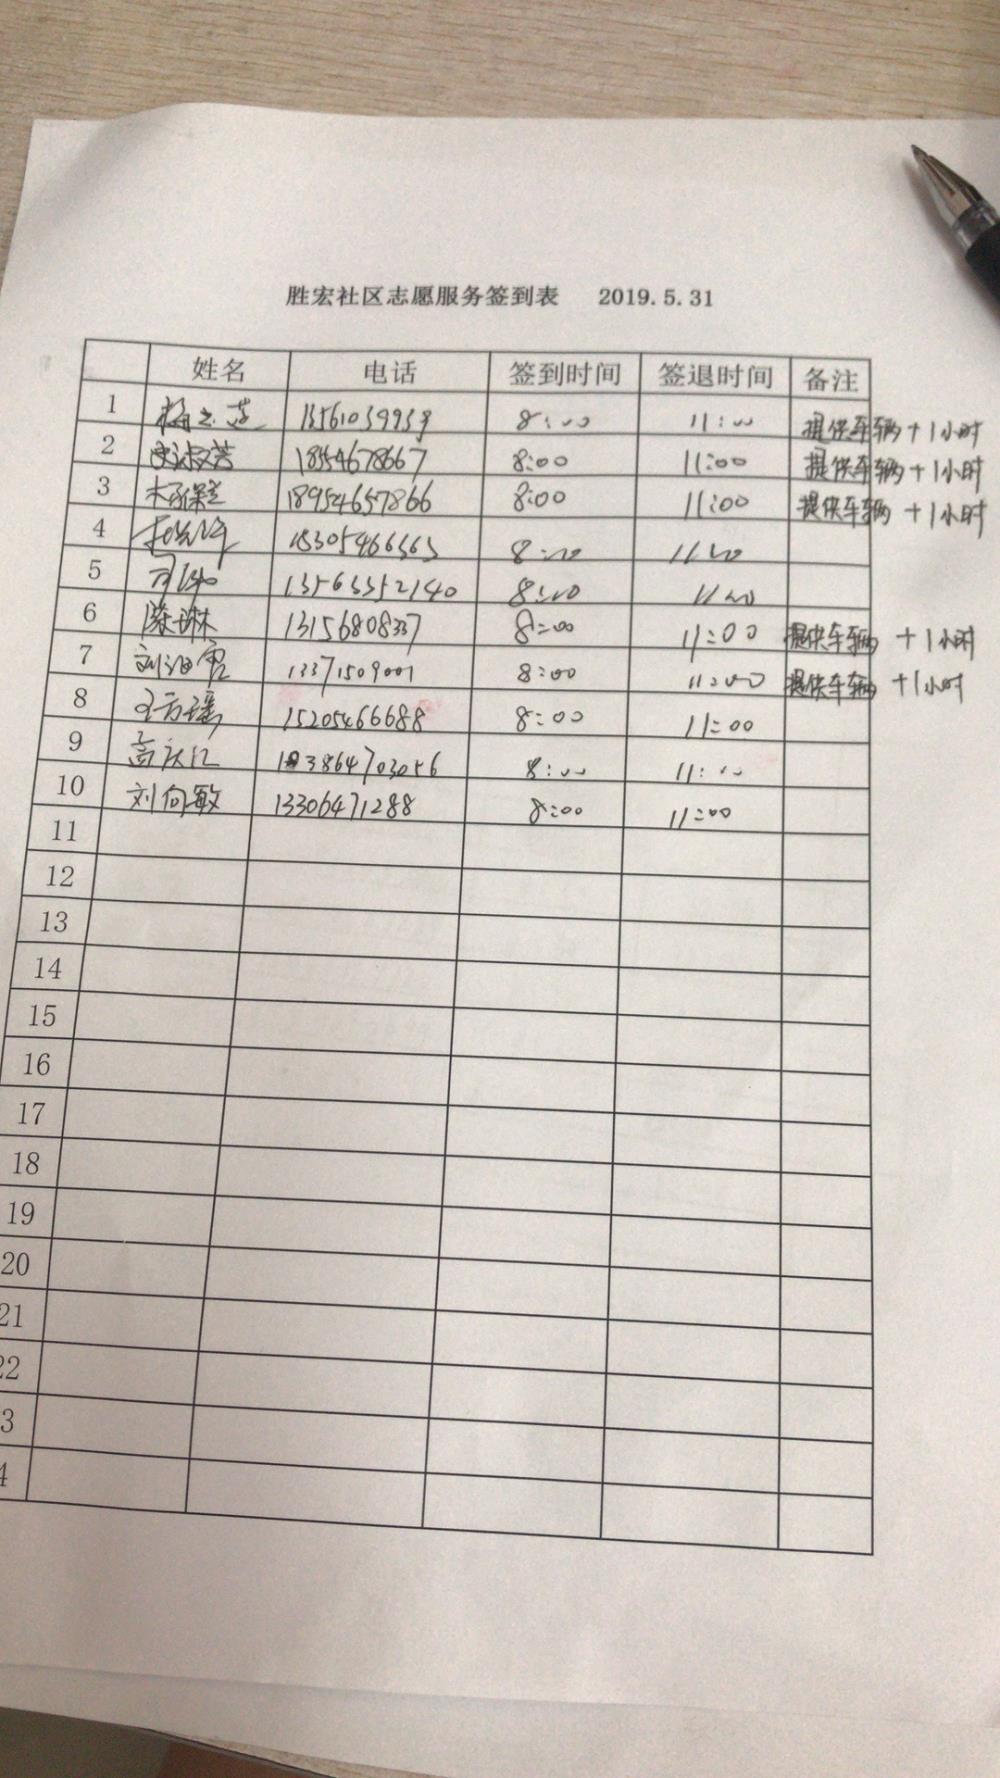 胜宏社区志愿服务签到表 2019.5.31
姓名 电话 签到时间 签退时间 备注
1 13561039939 8:00 11:00 提供车辆+1小时
2 18554678667 8:00 11:00 提供车辆+1小时
3 18954657866 8:00 11:00 提供车辆+1小时
4 15305466563 8:00 11:00
5 13563352140 8:00 11:00
6 滕琳 13156808337 8:00 11:00 提供车辆 +1小时
7 13371509001 8:00 11:00 提供车辆 +1小时
8 王方瑶 15205466688 8:00 11:00
9 13864703056 8:00 11:00
10 刘向敏 13306471288 8:00 11:00
11
12
13
14
15
16
17
18
19
20
21
22
3
4